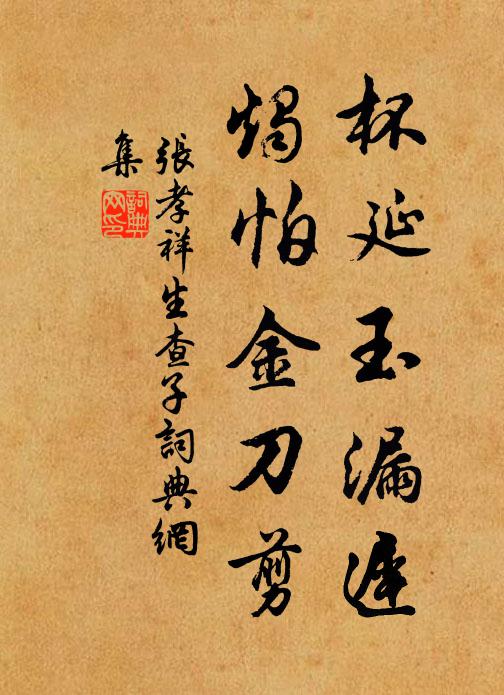 杯延玉漏遲
燭怕金刀剪
張孝祥生查子詞典網
集
詞典網印